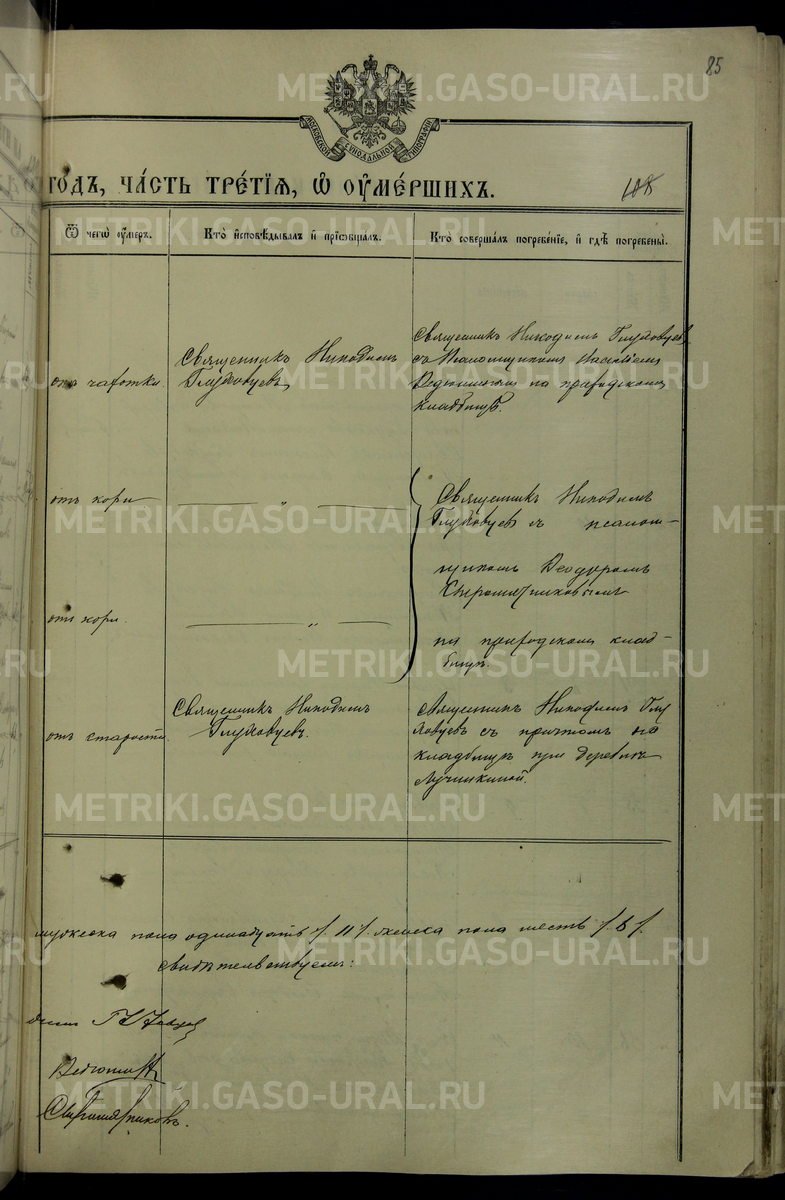 85
МОСКОВСКОЙ СѴНОДАЛЬНОЙ ТИПОГРАФІИ
ГОДЪ, ЧА́СТЬ ТРЕ́ТІѦ, Ѡ ОУ҆МЕ́РШИХЪ.
Ѿ чегѡ̀ оу҆́меръ.
Кто̀ и҆сповѣ́дывалъ и҆ прїѡбща́лъ.
Кто̀ соверша́лъ погребе́нїе, и҆ гдѣ̀ погребены̀.
отъ чахотки
Священникъ Никодимъ
Глуховцевъ
Священникъ Никодимъ Глуховцевъ
съ Псаломщикомъ
на приходскомъ
кладбищѣ.
отъ кори
— " —
Священникъ Никодимъ
Глуховцевъ съ псалом-
щикомъ Ѳеодоромъ
Сыромятниковымъ
на приходскомъ клад-
бищѣ.
отъ кори.
— " —
отъ старости
Священникъ Никодимъ
Глуховцевъ.
Священникъ Никодимъ Глу
ховцевъ съ причтомъ на
кладбищѣ при деревнѣ
Лучинкиной.
мужеска пола одинадцать /.11/. женска пола шесть /.6/.
свидѣтельствуемъ:
Сыромятниковъ.
METRIKI.GASO-URAL.RU